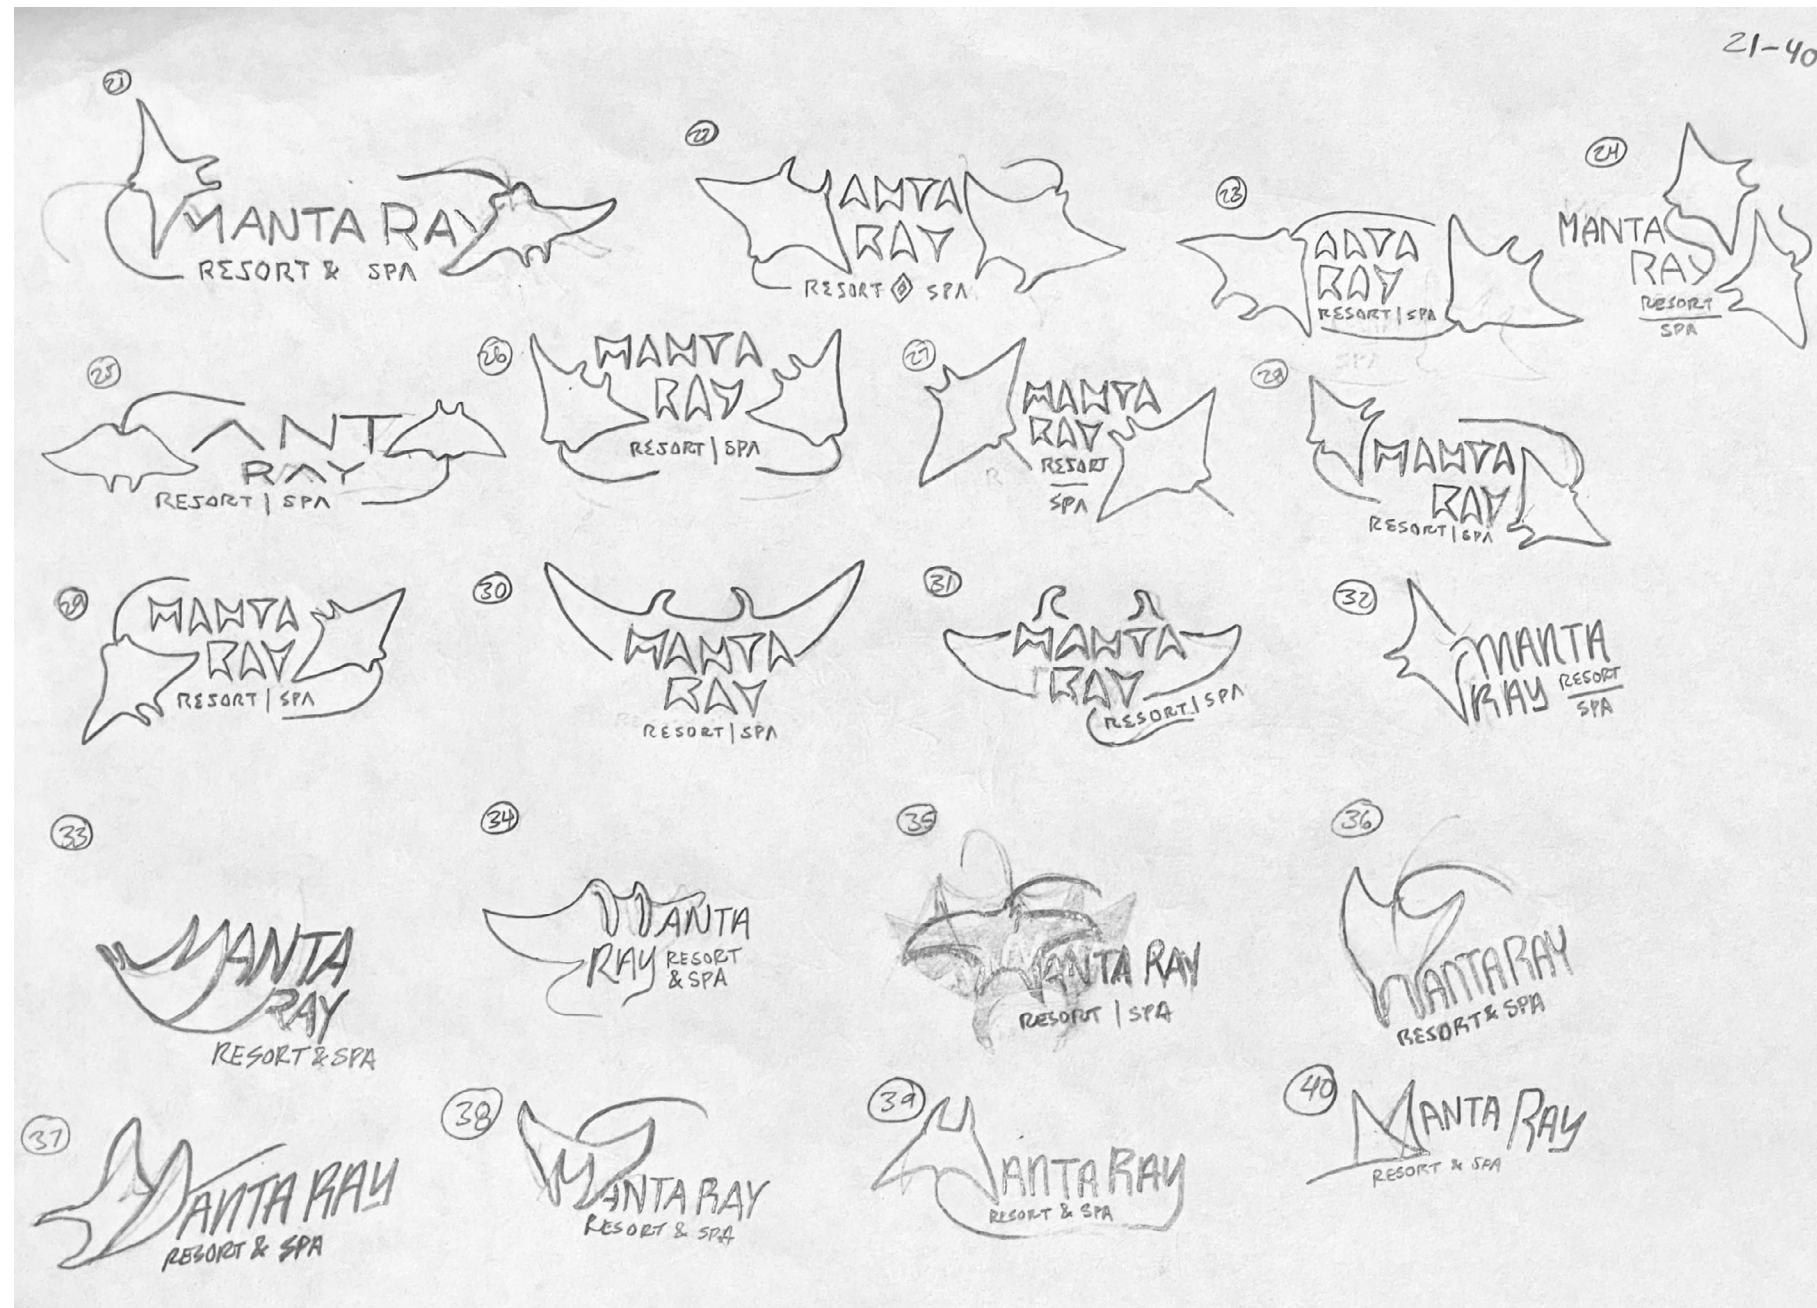 21-40
21
MANTA RAY
RESORT & SPA
22
ANTA
RAY
RESORT SPA
23
ANTA
RAY
RESORT | SPA
24
MANTA
RAY
RESORT
SPA
25
ANT
RAY
RESORT | SPA
26
MANTA
RAY
RESORT | SPA
27
MANTA
RAY
RESORT
SPA
28
MANTA
RAY
RESORT | SPA
29
MANTA
RAY
RESORT | SPA
30
MANTA
RAY
RESORT | SPA
31
MANTA
RAY
RESORT | SPA
32
MANTA
RAY RESORT
SPA
33
MANTA
RAY
RESORT & SPA
34
MANTA
RAY RESORT
& SPA
35
MANTA RAY
RESORT | SPA
36
MANTA RAY
RESORT & SPA
37
MANTA RAY
RESORT & SPA
38
MANTA RAY
RESORT & SPA
39
MANTA RAY
RESORT & SPA
40
MANTA RAY
RESORT & SPA